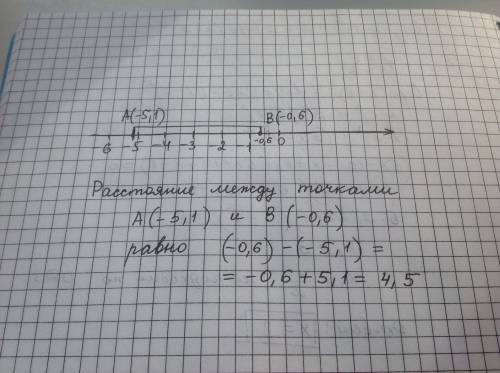 A(-5,1) B(-0,6)
6 -5 -4 -3 -2 -1 -0,6 0
Расстояние между точками
A(-5,1) и B(-0,6)
равно (-0,6)-(-5,1)=
= -0,6+5,1= 4,5